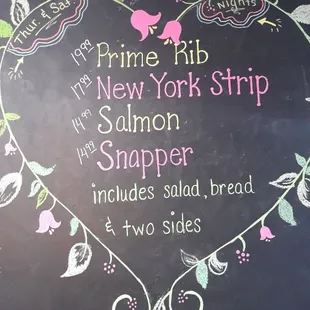 Thur. & Sat.
Nights
19.99 Prime Rib
17.99 New York Strip
14.99 Salmon
14.99 Snapper
includes salad, bread
& two sides